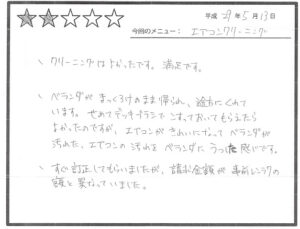 平成 29年 5月 13日
今回のメニュー： エアコンクリーニング
、クリーニングはよかったです。満足です。
、ベランダが まっくろけのまま帰られ、途方にくれて
います。せめてデッキブラシで こすっておいてもらえたら
よかったのですが、エアコンが きれいになって ベランダが
汚れた、エアコンの汚れを ベランダに うつした感じです。
、すぐ訂正してもらいましたが、請求金額が 事前
額と 異なっていました。